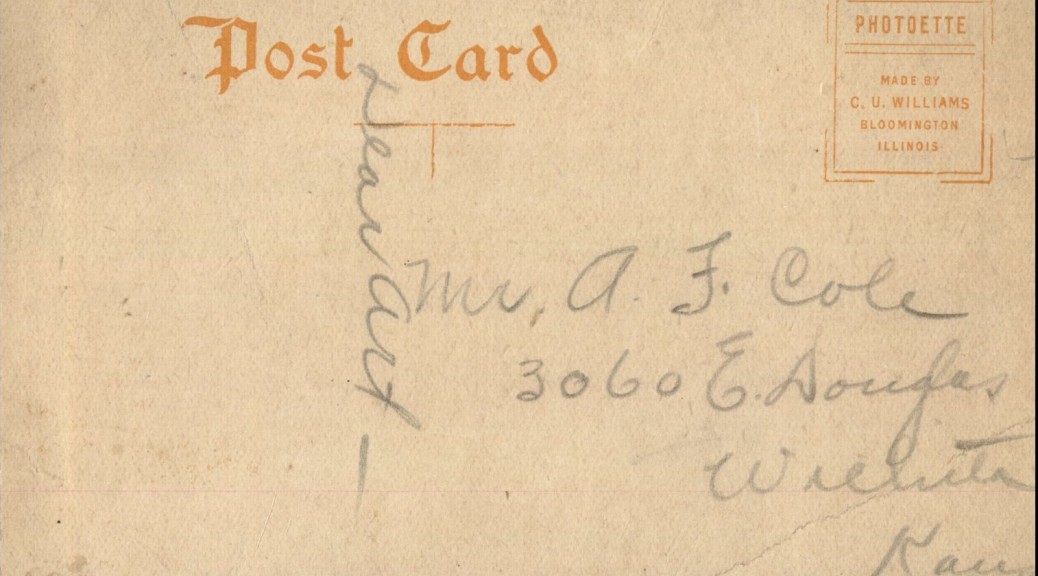 Post Card
PHOTOETTE
MADE BY
C. U. WILLIAMS
BLOOMINGTON
ILLINOIS
Dear Art —
Mr. A. F. Cole
3060 E. Douglas
Wichita
Kan